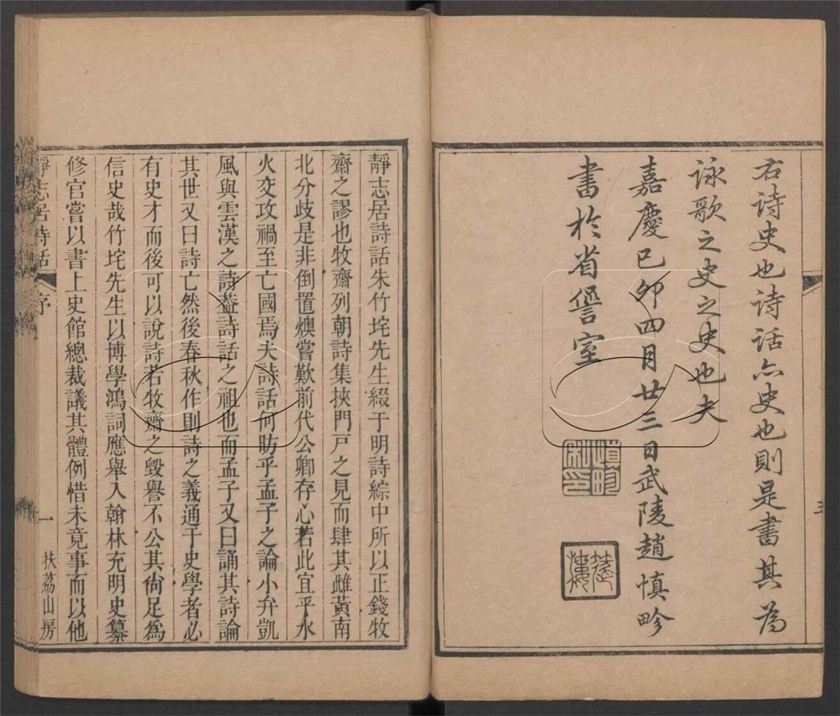 右詩史也詩話亦史也則是書其為
詠歌之史之史也夫
嘉慶己卯四月廿三日武陵趙慎畛
書於省諐室
靜志居詩話朱竹垞先生綴于明詩綜中所以正錢牧
齋之謬也牧齋列朝詩集挾門戶之見而肆其雌黃南
北分歧是非倒置燠嘗歎前代公卿存心若此宜乎水
火交攻禍至亡國焉夫詩話何昉乎孟子之論小弁凱
風與雲漢之詩葢詩話之祖也而孟子又曰誦其詩論
其世又曰詩亡然後春秋作則詩之義通于史學者必
有史才而後可以說詩若牧齋之毀譽不公其尙足爲
信史哉竹垞先生以博學鴻詞應舉入翰林充明史纂
修官嘗以書上史館總裁議其體例惜未竟事而以他
靜志居詩話
序
一
扶荔山房